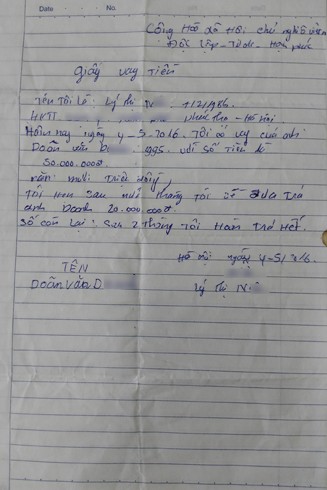 Date No.
Cộng Hòa xã Hội chủ nghĩa việt nam
Độc lập - Tự do - Hạnh phúc
giấy vay tiền
Tên tôi là: Lý thị N
HKTT
Hôm nay ngày 4-5-2016. Tôi có vay của anh
Doãn văn D 1995. với số tiền là
50.000.000đ
năm mươi triệu đồng,
Tôi hẹn sau một tháng tôi sẽ đưa trả
anh Doanh 20.000.000đ.
Số còn lại: Sau 2 tháng Tôi Hoàn Trả Hết.
Hà Nội ngày 4-5/2016.
TÊN
Doãn Văn D
Lý thị N